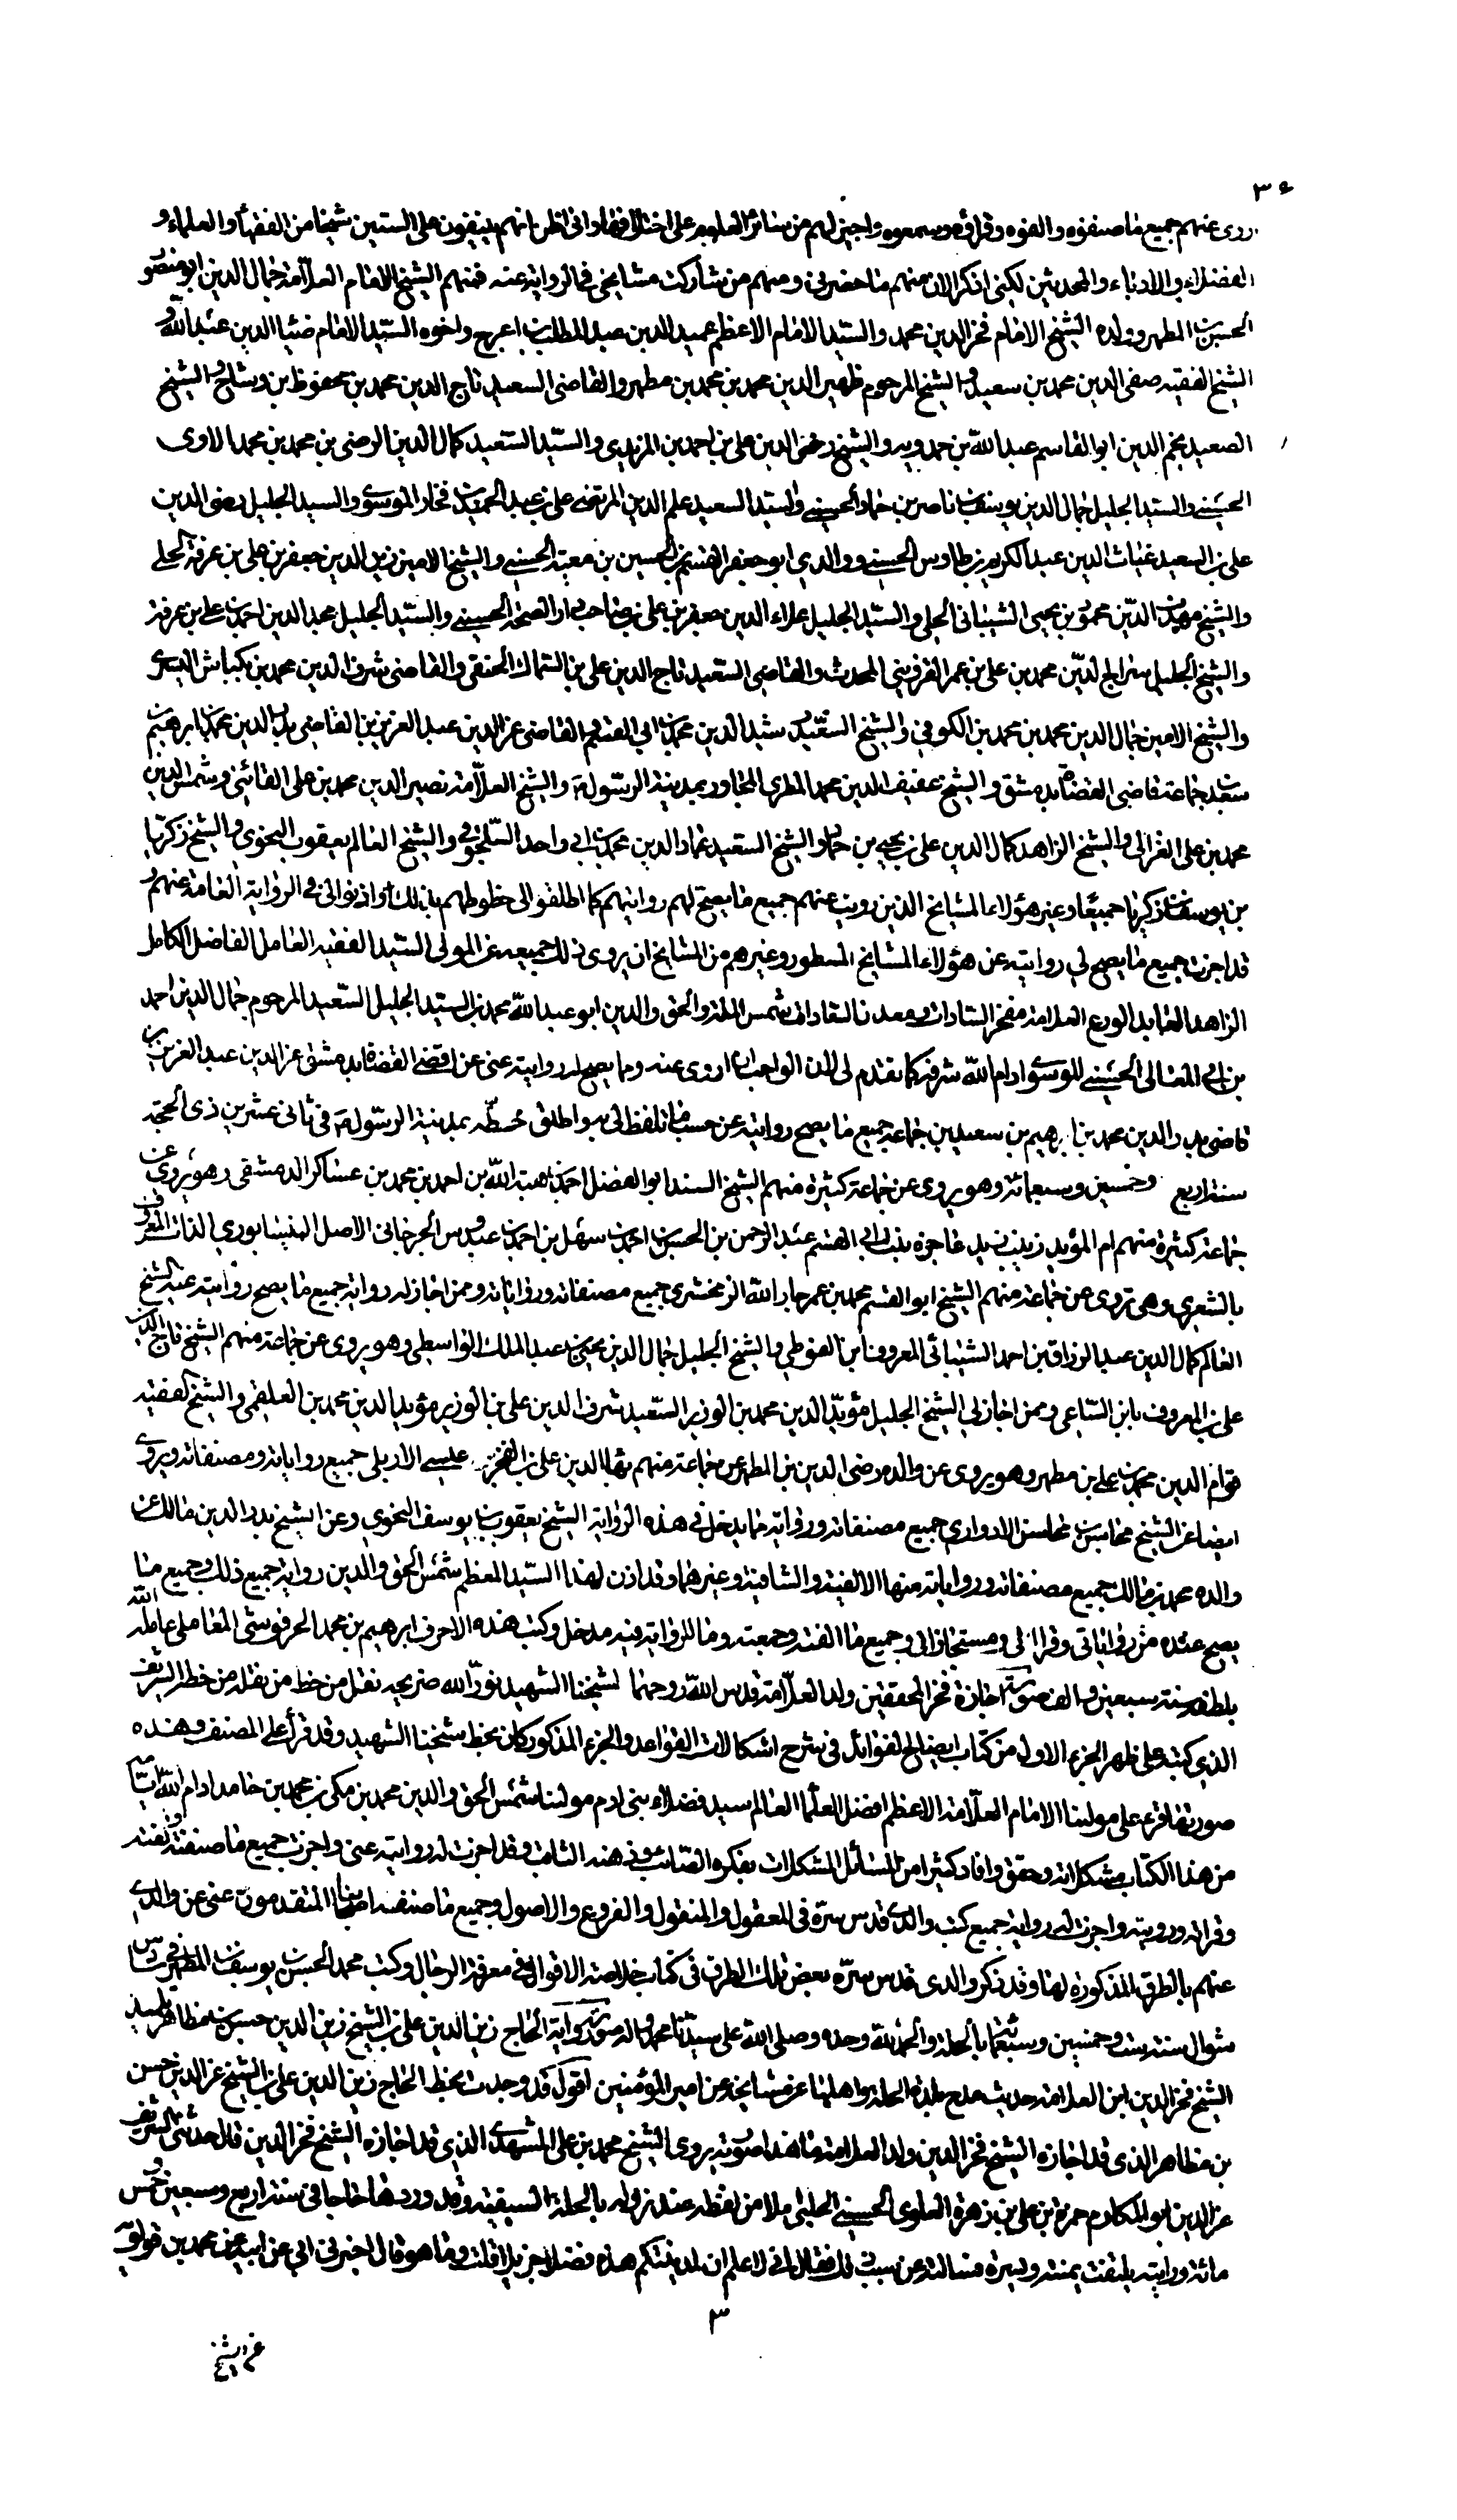 ٣٤
روى عنهم جميع ما صنفوه والفوه وقراؤه وسمعوه واجيز لهم من سائر العلوم على اختلافها وانى اظن انهم ينيفون على الستين شيخا من الفقهاء والعلماء و
الفضلاء والادباء والمحدثين لكنى اذكر الان منهم ما حضرنى ومنهم من شاركت مشايخى فى الرواية عنه فمنهم الشيخ الامام العلامة جمال الدين ابو منصور
الحسن بن المطهر وولده الشيخ الامام فخر الدين محمد والسيد الامام الاعظم عميد الدين عبد المطلب بن اعرج واخوه السيد الامام ضياء الدين عبد الله و
الشيخ الفقيه صفى الدين محمد بن سعيد والشيخ المرحوم ظهير الدين محمد بن محمد بن مطهر والقاضى السعيد تاج الدين محمد بن محفوظ بن وشاح والشيخ
الصعيد نجم الدين ابو القاسم عبد الله بن حمدويه والشيخ رضى الدين على بن احمد بن المزيدى والسيد السعيد كمال الدين الرضى بن محمد بن محمد الاوى
الحسينى والسيد الجليل جمال الدين يوسف بن ناصر بن حماد الحسينى والسيد السعيد علم الدين المرتضى على بن عبد الحميد بن فخار الموسوى والسيد الجليل رضى الدين
على بن السعيد غياث الدين عبد الكريم بن طاوس الحسنى ووالدى ابو جعفر القسم بن الحسين بن معية الحسنى والشيخ الامين زين الدين جعفر بن على بن عرفة الحلى
والشيخ مهذب الدين محمود بن يحيى الشيبانى الحلى والسيد الجليل علاء الدين جعفر بن على بن صاحب دار الصخر الحسينى والسيد الجليل مجد الدين احمد بن على بن عرفة
والشيخ الجليل سراج الدين محمد بن على بن عمر القزوينى المحدث والقاضى السعيد تاج الدين على بن السماك الحنفى والقاضى شرف الدين محمد بن بكتاش التسترى
والشيخ الامين جمال الدين محمد بن محمد بن الكوفى والشيخ السعيد رشيد الدين محمد بن ابى القسم والقاضى عز الدين عبد العزيز بن القاضى بدر الدين محمد بن ابرهيم بن
سعد بن جماعة قاضى القضاة بدمشق والشيخ عفيف الدين محمد المطرى المجاور بمدينة الرسول ص والشيخ العلامة نصير الدين محمد بن على القاشى وشمس الدين
محمد بن على الغزالى والشيخ الزاهد كمال الدين على بن يحيى بن حماد والشيخ السعيد عماد الدين محمد بن ابى واحد السلجوقى والشيخ العالم يعقوب النحوى والشيخ زكريا
بن يوسف بن زكريا جميعا وغير هؤلاء المشايخ الذين رويت عنهم جميع ما يصح لهم روايتهم كما اطلقوا لى خطوطهم بذلك واذنوا لى فى الرواية العامة عنهم و
قد اجزت جميع ما يصح لى روايته عن هؤلاء المشايخ المسطور وغيرهم من المشايخ ان يروى ذلك جميعه عن المولى السيد الفقيه العامل الفاضل الكامل
الزاهد العابد الورع العلامة مفخر السادات ومعدن السعادات شمس الملة والحق والدين ابو عبد الله محمد بن السيد الجليل السعيد المرحوم جمال الدين احمد
بن ابى المعالى الحسينى الموسوى ادام الله شرفه كما تقدم لى الاذن الواجب ان اروى عنه وما يصح له روايته عنى عن اقضى القضاة بدمشق عز الدين عبد العزيز بن
قاضى بدر الدين محمد بن ابرهيم بن سعيد بن جماعة جميع ما يصح روايته عن حسب ما تلفظ لى به واطلق بخطه بمدينة الرسول ص فى ثانى عشرين ذى الحجة
سنة اربع وخمسين وسبعمائة وهو يروى عن جماعة كثيرة منهم الشيخ السند ابو الفضل احمد بن هبة الله بن احمد بن محمد بن عساكر الدمشقى وهو يروى عن
جماعة كثيرة منهم ام المؤيد زينب بنت ابى القسم عبد الرحمن بن الحسن بن احمد بن سهل بن احمد بن عبدوس الجرجانى الاصل النيسابورى الدار المعروف
بالشعرى وهى تروى عن جماعة منهم الشيخ ابو القسم محمد بن عمر جار الله الزمخشرى جميع مصنفاته ورواياته وممن اجاز له رواية جميع ما يصح روايته عنه الشيخ
العالم كمال الدين عبد الرزاق بن احمد الشيبانى المعروف بابن الفوطى والشيخ الجليل جمال الدين يحيى بن عبد الملك الواسطى وهو يروى عن جماعة منهم الشيخ تاج الدين
على بن المعروف بابن الساعى وممن اجاز لى الشيخ الجليل مؤيد الدين محمد بن الوزير السعيد شرف الدين على بن الوزير مؤيد الدين محمد بن العلقمى والشيخ الفقيه
قوام الدين محمد بن على بن مطهر وهو يروى عن والده رضى الدين بن المطهر عن جماعة منهم بهاء الدين على بن الفخر عيسى الاربلى جميع رواياته ومصنفاته ويروى
ايضا عن الشيخ محاسن بن محاسن الادوارى جميع مصنفاته ورواياته مما يدخل فى هذه الرواية الشيخ يعقوب بن يوسف النحوى وعن الشيخ بدر الدين مالك عن
والده محمد بن مالك جميع مصنفاته ورواياته منها الالفية والشافية وغيرهما وقد اذن لهذا السيد المعظم شمس الحق والدين رواية جميع ذلك وجميع ما
يصح عنده من رواياتى وقراءاتى ومستجازاتى وجميع ما الفته وجمعته وما للرواية فيه مدخل وكتب هذه الاحرف ابرهيم بن محمد الحرفوشى العاملى عامله الله
بلطفه سنة سبعين والف صورة اجازة فخر المحققين ولد العلامة قدس الله روحهما لشيخنا الشهيد نور الله ضريحه نقل من خط من نقله من خطه الشريف
الذى كتبه على ظهر الجزء الاول من كتاب ايضاح الفوائد فى شرح اشكالات القواعد والجزء المذكور كان بخط شيخنا الشهيد وقد قرأ على المصنف وهذه
صورتها قرء على مولينا الامام العلامة الاعظم افضل العلماء العالم سيد فضلاء بنى ادم مولينا شمس الحق والدين محمد بن مكى بن محمد بن حامد ادام الله ايامه
من هذا الكتاب مشكلاته وحقق وافاد كثيرا من المسائل المشكلات بفكره الصائب وذهنه الثاقب وقد اجزت له روايته عنى واجزت جميع ما صنفته والفته
وقراته ورويته واجزت له رواية جميع كتب والدى قدس سره فى المعقول والمنقول والفروع والاصول وجميع ما صنفه اصحابنا المتقدمون عنى عن والدى
عنهم بالطرق المذكورة لها وقد ذكر والدى قدس سره بعض تلك الطرق فى كتاب خلاصة الاقوال فى معرفة الرجال وكتب محمد بن الحسن بن يوسف بن المطهر فى سادس
شوال سنة ست وخمسين وسبعمائة بالحلة والحمد لله وحده وصلى الله على سيدنا محمد واله صورة رواية الحاج زين الدين على بن الشيخ زين الدين حسن بن مظاهر تلميذ
الشيخ فخر الدين ابن العلامة حديث مدح بلدة الحلة واهلها عن مشايخه عن امير المؤمنين اقول قد وجدت بخط الحاج زين الدين على بن الشيخ عز الدين حسن
بن مظاهر الذى قد اجازه الشيخ فخر الدين ولد العلامة ما هذا صورته يروى الشيخ محمد بن على المشهدى الذى قد اجازه الشيخ فخر الدين قال حدثنى الشريف
عز الدين ابو المكارم حمزة بن على بن زهرة العلوى الحسينى الحلبى املاء من لفظه عند نزوله بالحلة السيفية وقد وردها حاجا فى سنة اربع وسبعين وخمس
مائة ورايته يلتفت يمنة ويسرة فسالته عن سبب ذلك فقال انى لاعلم ان لمدينتكم هذه فضلا جزيلا قلت وما هو قال اخبرنى ابى عن ابيه عن محمد بن قولويه
٣
عن الشيخ